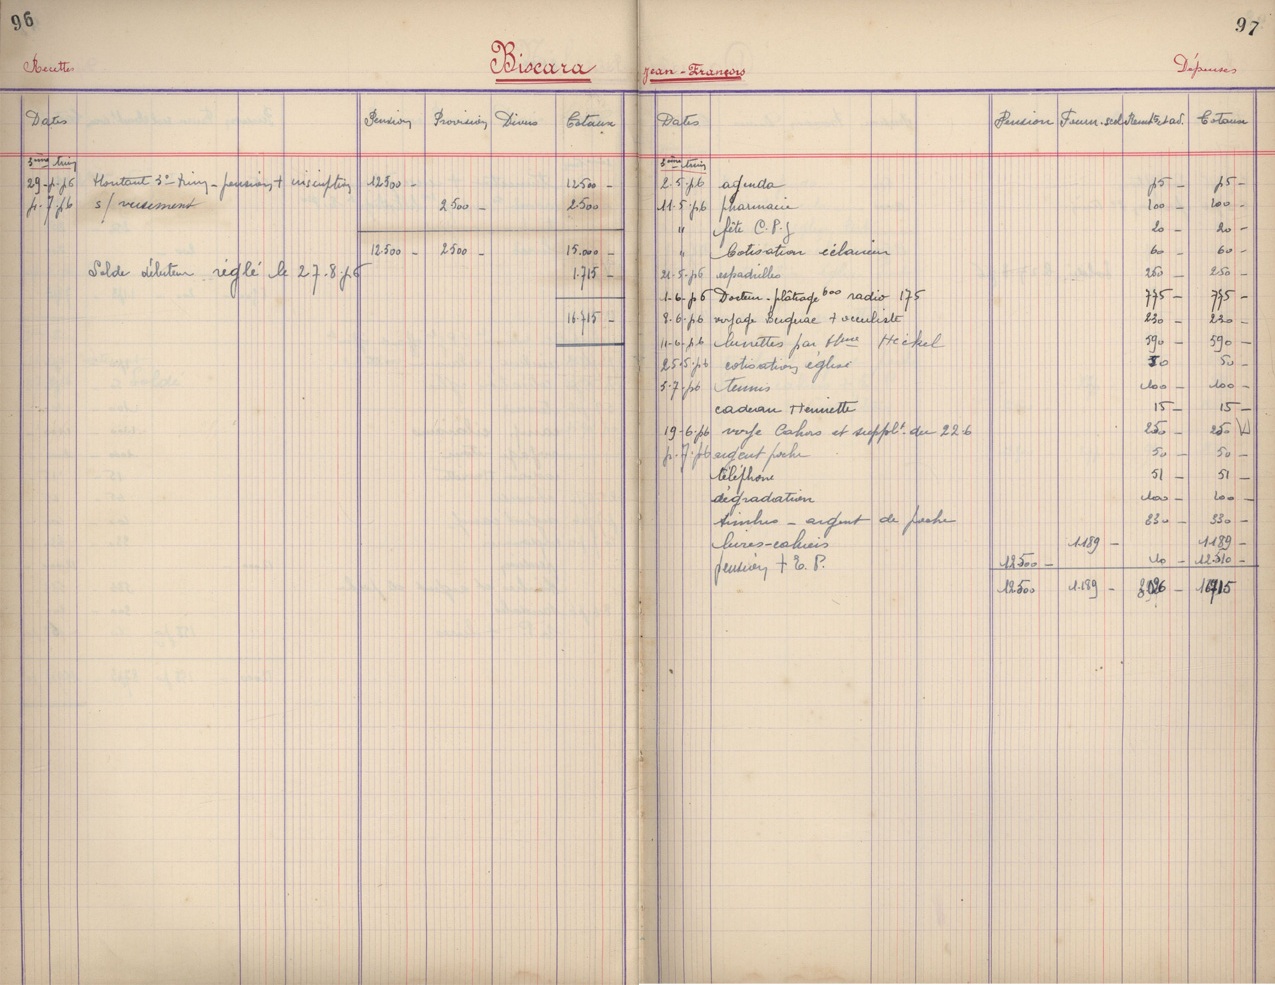 96
Recettes
Biscara
Dates Pension Provision Divers Totaux
3ème trim
29-4-46 Montant 3e trim - pension + inscription 12500 - 12500 -
4-7-46 s/ versement 2500 - 2500 -
12500 - 2500 - 15.000 -
Solde débiteur réglé le 27.8.46 1.715 -
16.715 -
97
Jean-François
Dépenses
Dates Pension Fourn. scol. Totaux
3ème trim
2.5.46 agenda 45 - 45 -
11.5.46 pharmacie 100 - 100 -
" fête C.P.J 20 - 20 -
" Cotisation éclaireur 60 - 60 -
21.5.46 espadrilles 250 -
1.6.46 Docteur - plâtrage 600 radio 175 775 - 775 -
8.6.46 voyage + occuliste 230 - 230 -
11-6-46 lunettes par Mme Héckel 590 - 590 -
25.5.46 cotisation église 50 - 50 -
5.7.46 tennis 100 - 100 -
cadeau Henriette 15 - 15 -
19-6-46 voyage Cahors et supplt. du 22.6 250 - 250 -
4.7.46 argent poche 50 - 50 -
téléphone 51 51 -
dégradation 100 - 100 -
timbres - argent de poche 330 - 330 -
livres-cahiers 1189 - 1189 -
pension + T.P. 12500 - 10 - 12510 -
12500 1.189 - 16715 -